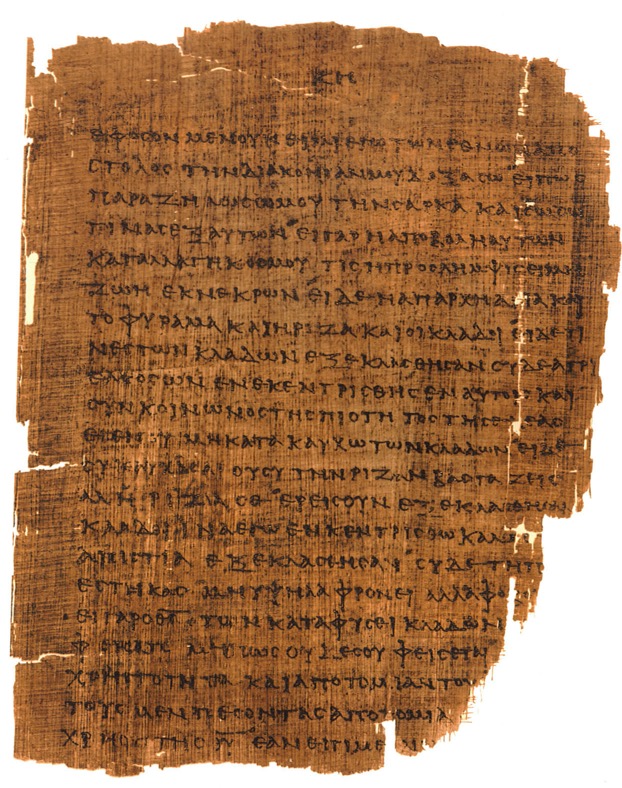 ΚΗ
ΕΦΟCΟΝ ΜΕΝ ΟΥΝ ΕΙΜΙ ΕΓΩ ΤΩΝ ΕΘΝΩΝ ΑΠΟ
CΤΟΛΟC ΤΗΝ ΔΙΑΚΟΝΙΑΝ ΜΟΥ ΔΟΞΑCΩ ΕΙ ΠΩC
ΠΑΡΑΖΗΛΩCΩ ΜΟΥ ΤΗΝ CΑΡΚΑ ΚΑΙ CΩCΩ
ΤΙΝΑC ΕΞ ΑΥΤΩΝ ΕΙ ΓΑΡ Η ΑΠΟΒΟΛΗ ΑΥΤΩΝ
ΚΑΤΑΛΛΑΓΗ ΚΟCΜΟΥ ΤΙC Η ΠΡΟCΛΗΜΨΙC ΕΙ ΜΗ
ΖΩΗ ΕΚ ΝΕΚΡΩΝ ΕΙ ΔΕ Η ΑΠΑΡΧΗ ΑΓΙΑ ΚΑΙ
ΤΟ ΦΥΡΑΜΑ ΚΑΙ Η ΡΙΖΑ ΚΑΙ ΟΙ ΚΛΑΔΟΙ ΕΙ ΔΕ ΤΙ
ΝΕC ΤΩΝ ΚΛΑΔΩΝ ΕΞΕΚΛΑCΘΗCΑΝ CΥ ΔΕ ΑΓΡΙ
ΕΛΑΙΟC ΩΝ ΕΝΕΚΕΝΤΡΙCΘΗC ΕΝ ΑΥΤΟΙC ΚΑΙ
CΥΝΚΟΙΝΩΝΟC ΤΗC ΠΙΟΤΗΤΟC ΤΗC ΕΛΑΙΑC
ΕΓΕΝΟΥ ΜΗ ΚΑΤΑΚΑΥΧΩ ΤΩΝ ΚΛΑΔΩΝ ΕΙ ΔΕ
CΥ ΚΑΥΧΑCΑΙ ΟΥ CΥ ΤΗΝ ΡΙΖΑΝ ΒΑCΤΑΖΕΙC
ΑΛΛ Η ΡΙΖΑ CΕ ΕΡΕΙC ΟΥΝ ΕΞΕΚΛΑCΘΗCΑΝ
ΚΛΑΔΟΙ ΙΝΑ ΕΓΩ ΕΝΚΕΝΤΡΙCΘΩ ΚΑΛΩC
ΑΠΙCΤΙΑ ΕΞΕΚΛΑCΘΗCΑΝ CΥ ΔΕ ΤΗ
ΕCΤΗΚΑC ΜΗ ΥΨΗΛΑ ΦΡΟΝΕΙ ΑΛΛΑ ΦΟ
ΕΙ ΓΑΡ Ο Θ̅C̅ ΤΩΝ ΚΑΤΑ ΦΥCΙΝ ΚΛΑΔΩΝ
ΜΗ ΠΩC ΟΥΔΕ CΟΥ ΦΕΙCΕΤΑΙ
ΧΡΗCΤΟΤΗΤΑ ΚΑΙ ΑΠΟΤΟΜΙΑΝ ΤΟΥ
ΤΟΥC ΜΕΝ ΠΕCΟΝΤΑC ΑΠΟΤΟΜΙΑ
ΧΡΗCΤΟΤΗC Θ̅Υ̅ ΕΑΝ ΕΠΙΜΕ